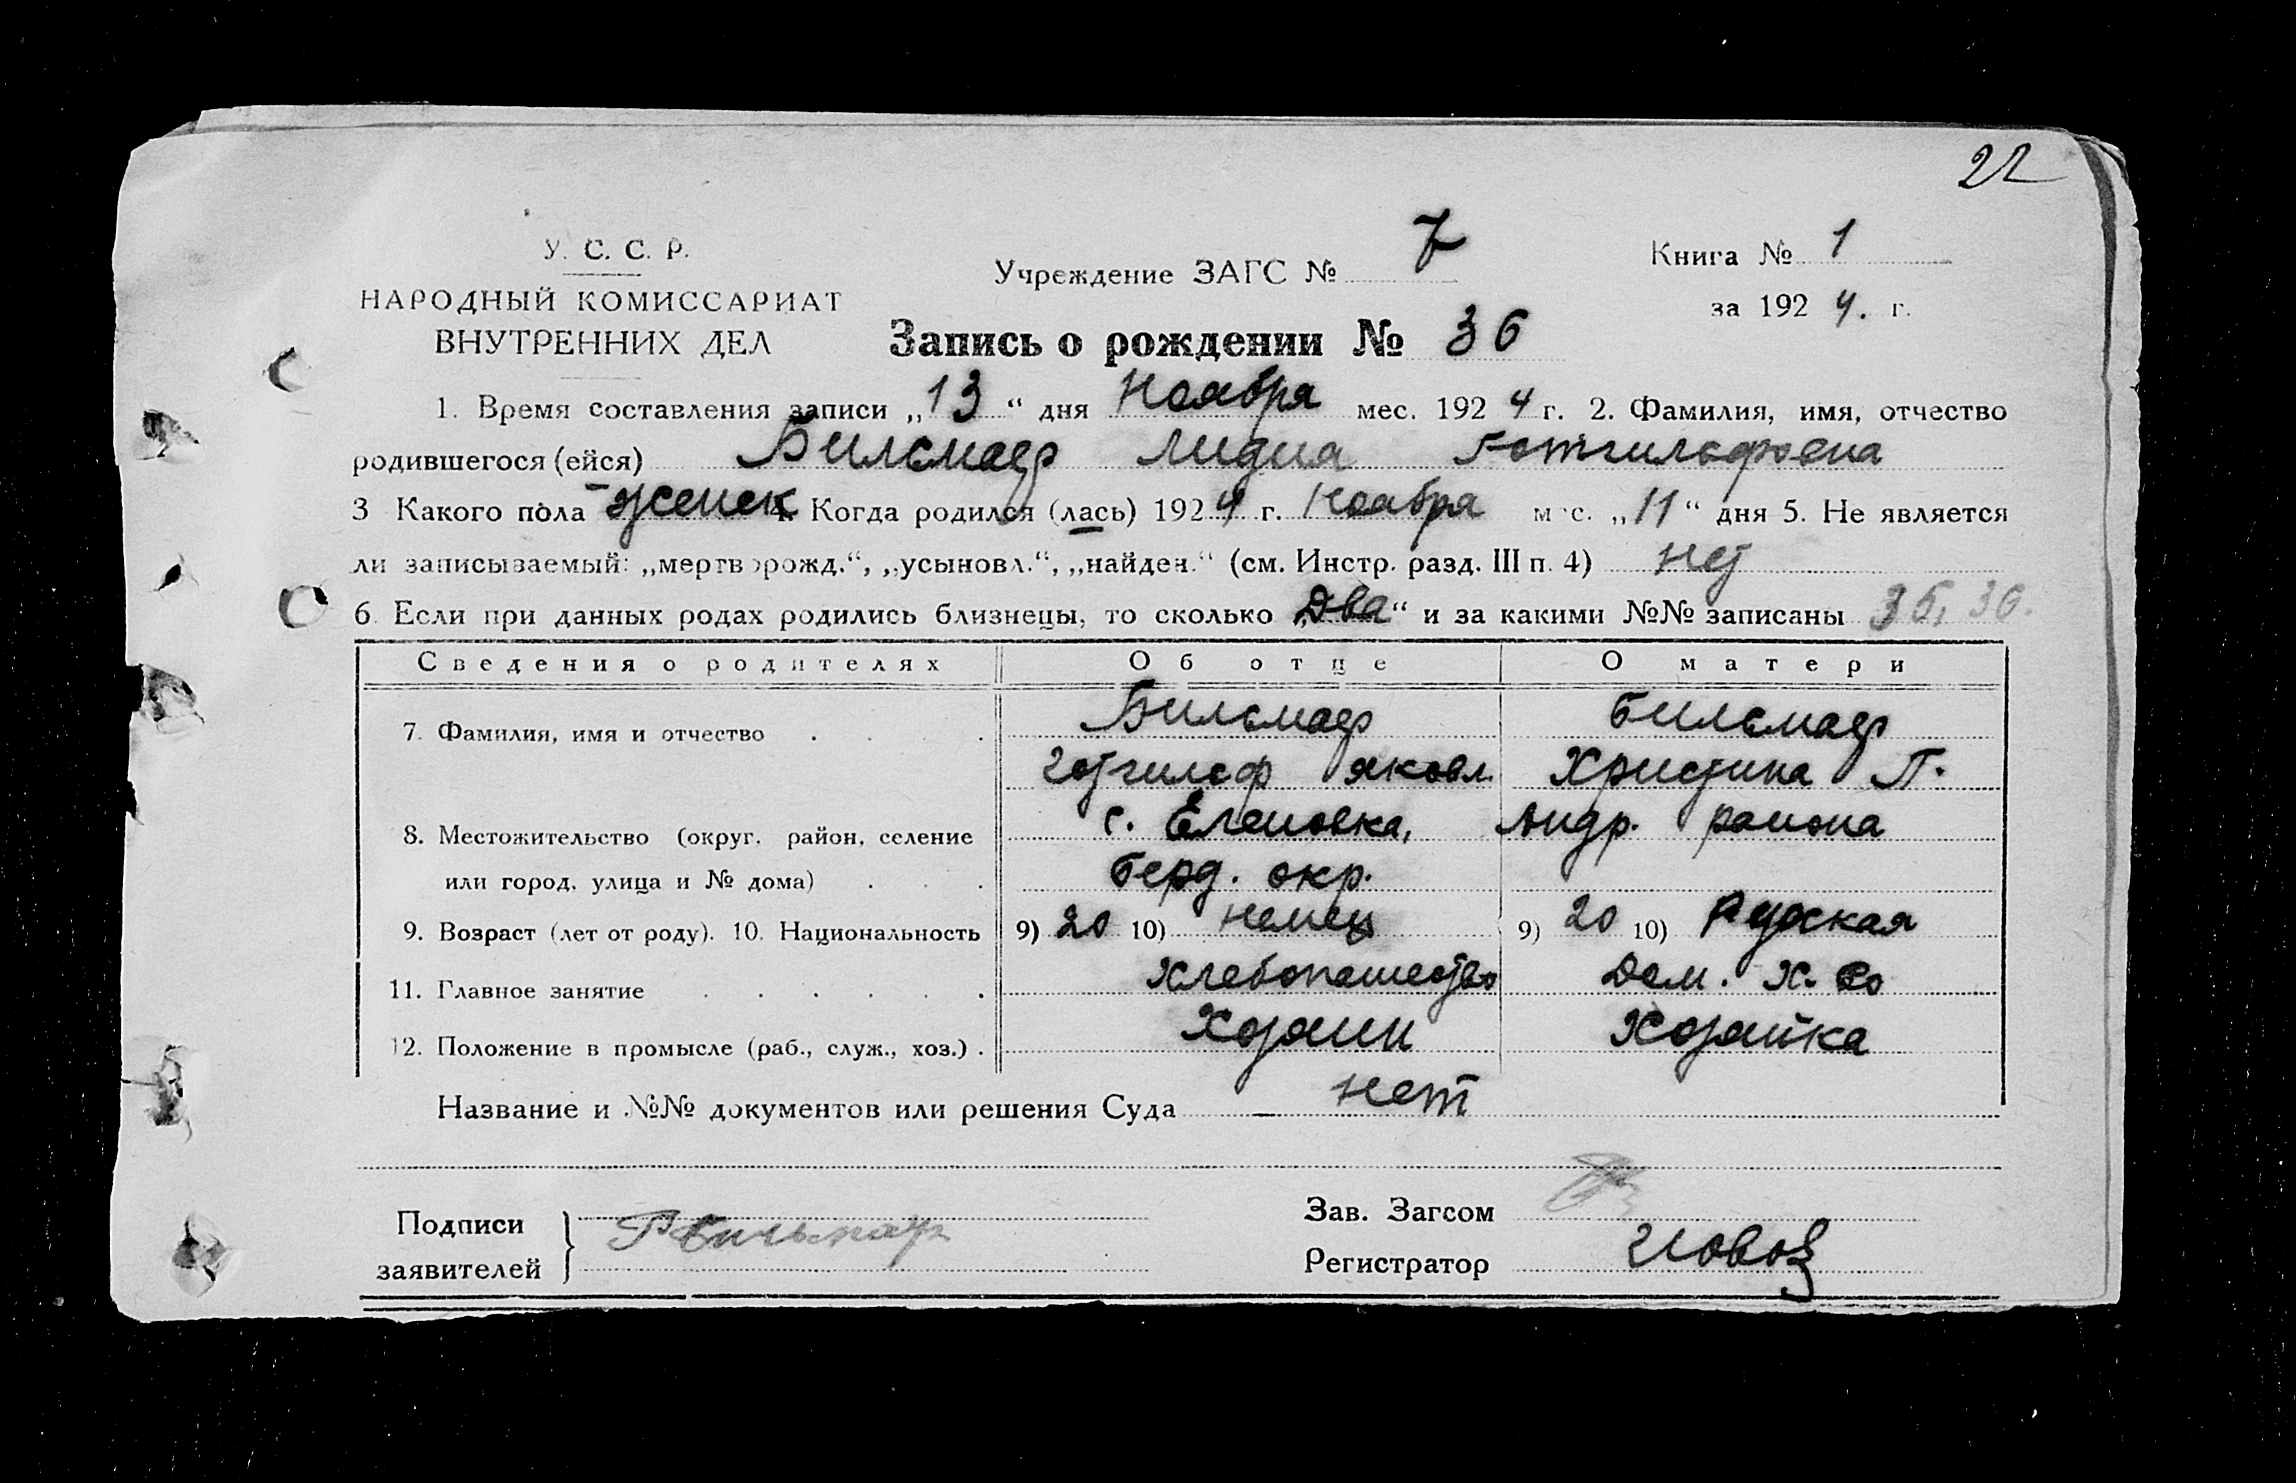 22
У. С. С. Р.
НАРОДНЫЙ КОМИССАРИАТ
ВНУТРЕННИХ ДЕЛ
Учреждение ЗАГС № 7
Книга № 1
за 1924. г.
Запись о рождении № 36
1. Время составления записи „13“ дня Ноября мес. 1924 г. 2. Фамилия, имя, отчество
родившегося (ейся) Бильмаер Лидиа Готгильфовна
3 Какого пола женск 4. Когда родился (лась) 1924 г. Ноября мес. „11“ дня 5. Не является
ли записываемый: „мертворожд.“, „усыновл.“, „найден.“ (см. Инстр. разд. III п. 4) нет
6. Если при данных родах родились близнецы, то сколько „Два“ и за какими №№ записаны 35, 36.
Сведения о родителях Об отце О матери
7. Фамилия, имя и отчество Бильмаер Бильмаер
Готгильф Яковл. Христина П.
8. Местожительство (округ, район, селение с. Еленовка, Андр. района
или город, улица и № дома) Берд. окр.
9. Возраст (лет от роду). 10. Национальность 9) 20 10) немец 9) 20 10) Русская
11. Главное занятие Хлебопашество Дом. Х. во
12. Положение в промысле (раб., служ., хоз.) Хозяин Хозяйка
Название и №№ документов или решения Суда — нет
Подписи
заявителей
Зав. Загсом
Регистратор